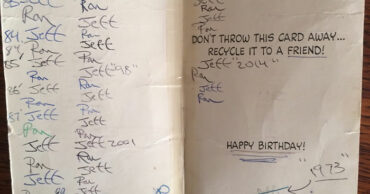 Ron
84 Jeff
84' Ron
85' Jeff
Ron
86' Jeff
Ron
87' Jeff
Ron
Jeff
Ron
Jeff
Ron
Jeff
Ron
Jeff "98"
Ron
Jeff
Ron
Jeff
Ron
Jeff 2001
Ron
Jeff
Ron
Jeff
Ron
Jeff
Ron
DON'T THROW THIS CARD AWAY...
RECYCLE IT TO A FRIEND!
Jeff "2014"
Ron
Jeff
Ron
HAPPY BIRTHDAY!
"1973"